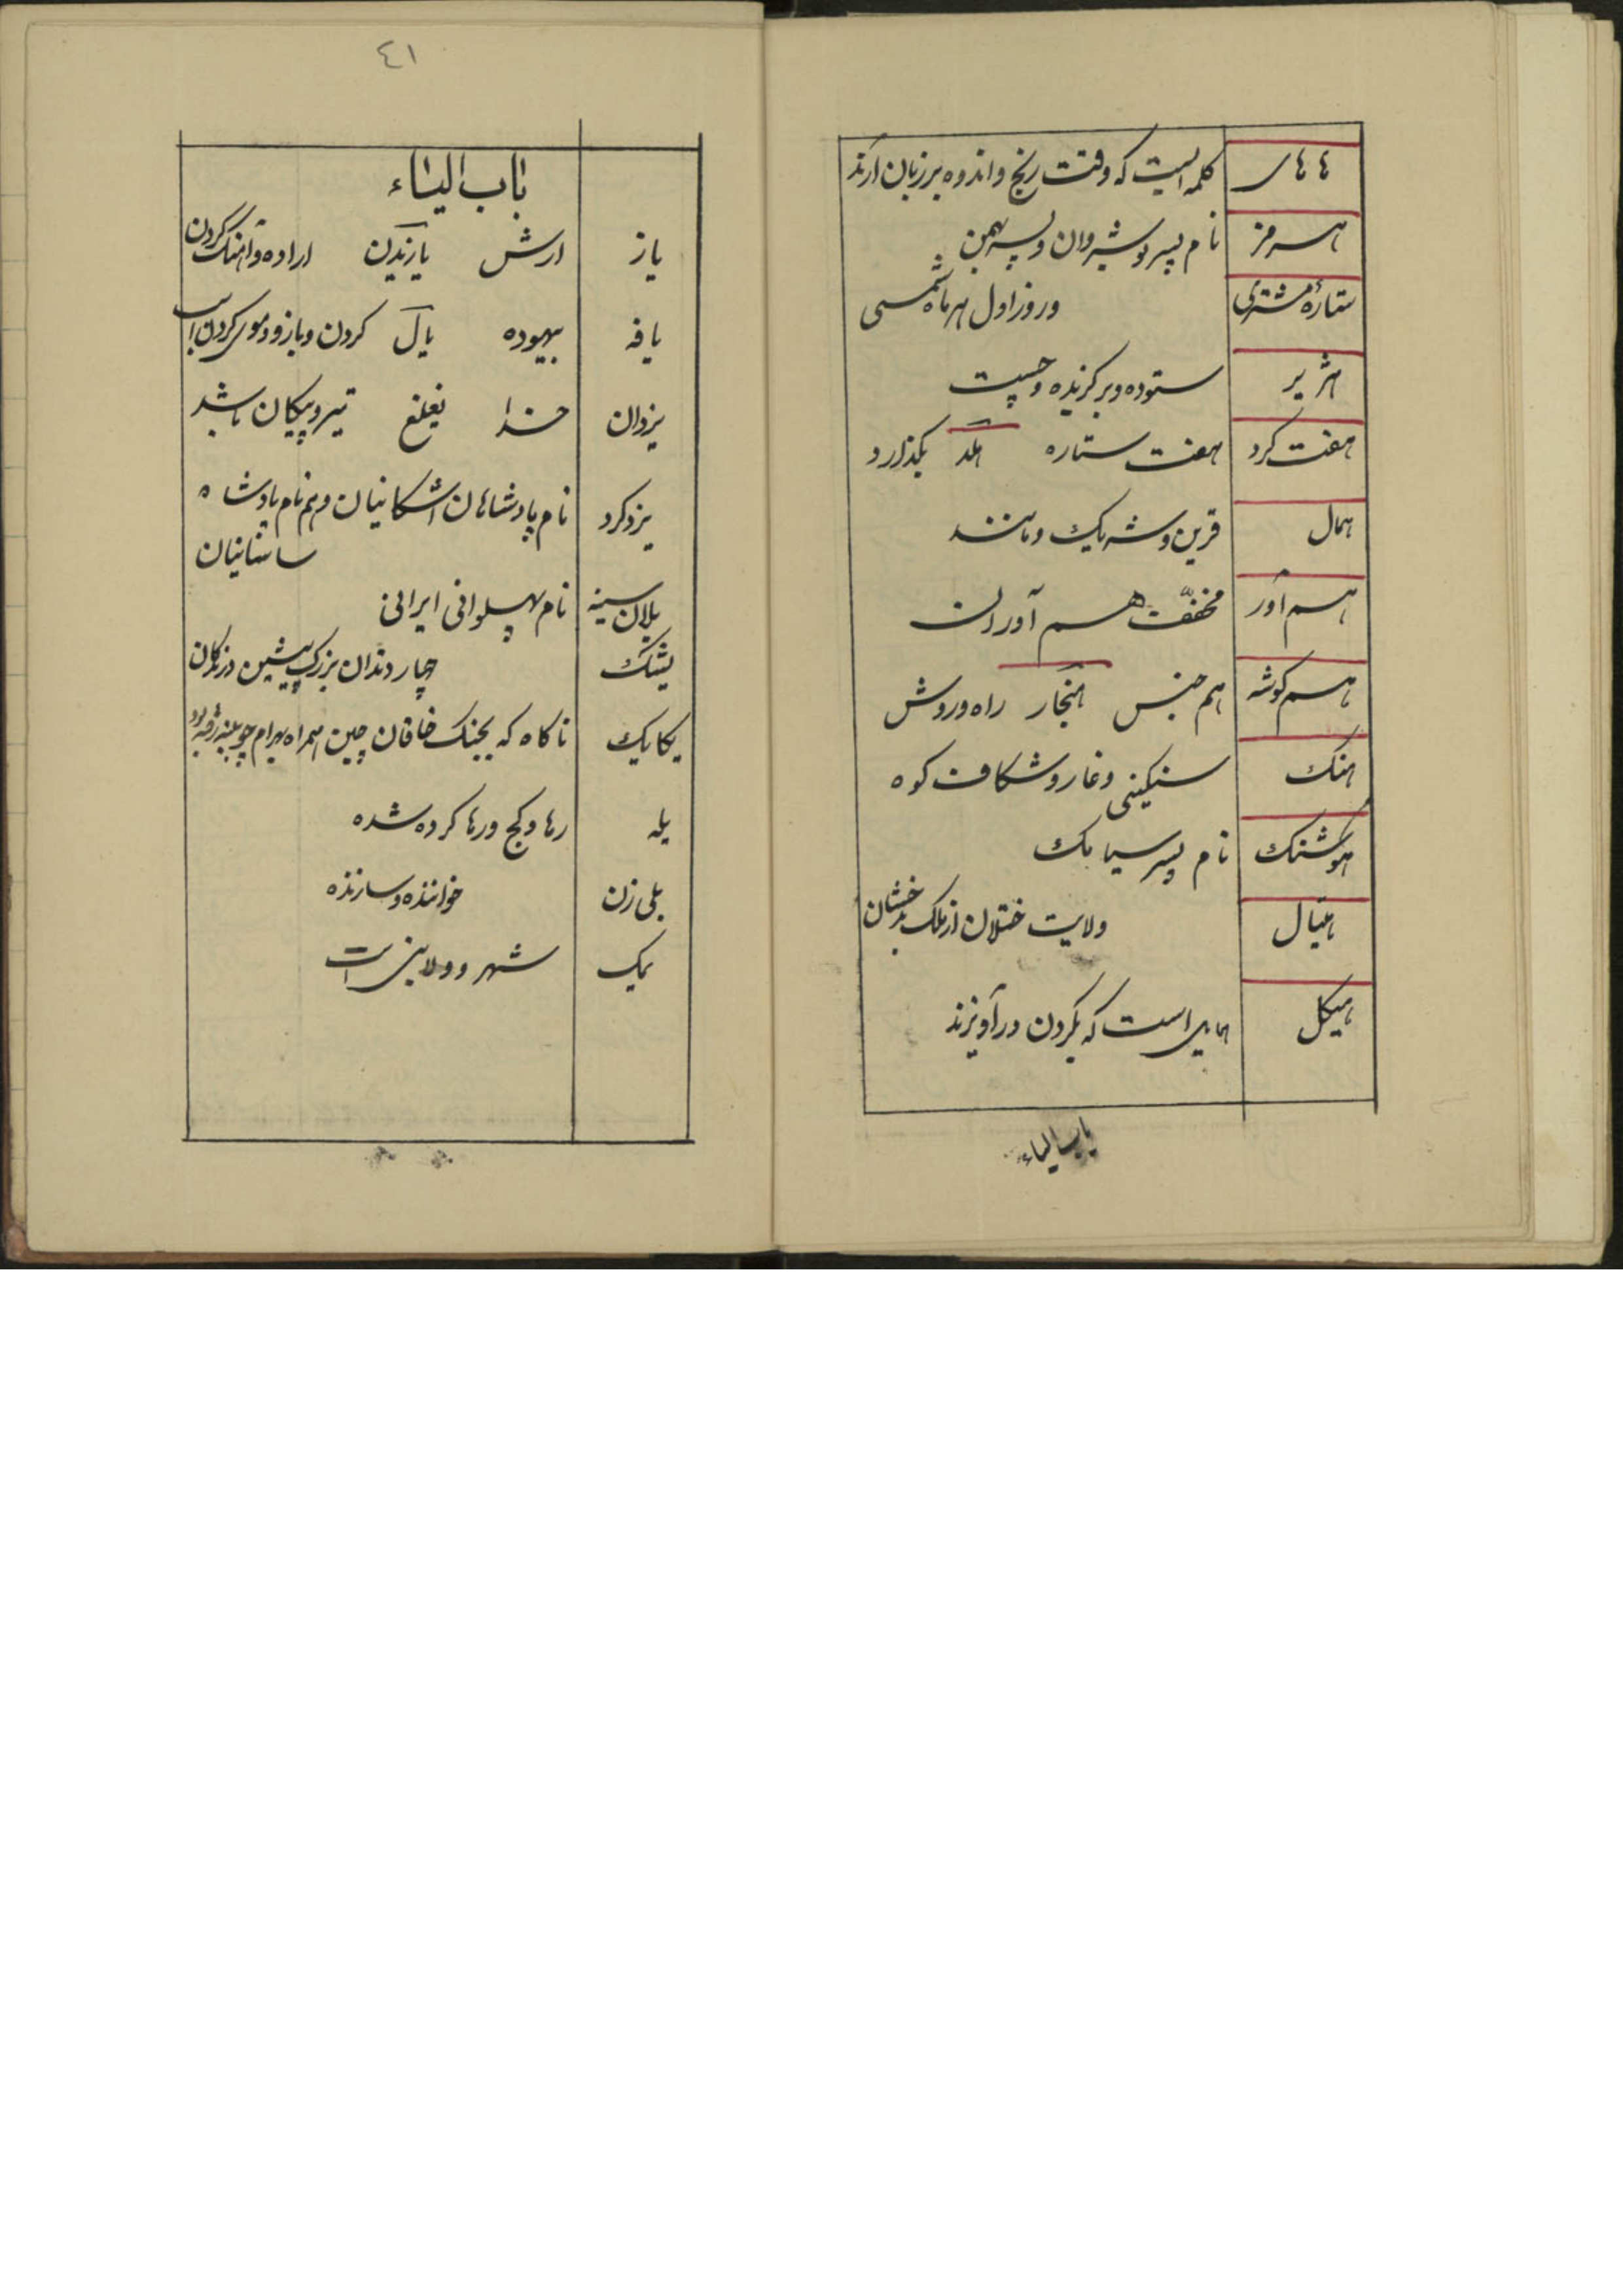 هاهای کلمه ایست که وقت رنج و اندوه بر زبان ارند
هرمز نام پسر نوشیروان و پسر بهمن
ستارهٔ مشتری و روز اول هر ماه شمسی
هژیر ستوده و برکزیده و چست
هفت کرد هفت ستاره هلد بکذارد
همال قرین و شریک و مانند
هم آور مخفّت هم آوران
هم کوشه هم جنس هنجار راه و روش
هنک سنکینی و غار و شکاف کوه
هوشنک نام پسر سیامک
هیتال ولایت ختلان از ملک بدخشان
هیکل همایل است که بکردن در آویزند
باب الیاء
٤١
باب الیاء
یاز ارش یازیدن اراده و آهنک کردن
یافه بیهوده یال کردن و بازو و موی کردن اسب
یزدان خدا یغلغ تیر و پیکان باشد
یزدکرد نام پادشاهان اشکانیان و هم نام پادشاه
ساسانیان
یلان سینه نام پهلوانی ایرانی
یشک چهار دندان بزرک پیشین درندکان
یکایک ناکاه که بجنک خاقان چین همراه بهرام چوبینه رفته بود
یله رها و کج و رها کرده شده
یلی زن خواننده و سازنده
یمک شهر و ولایتی است